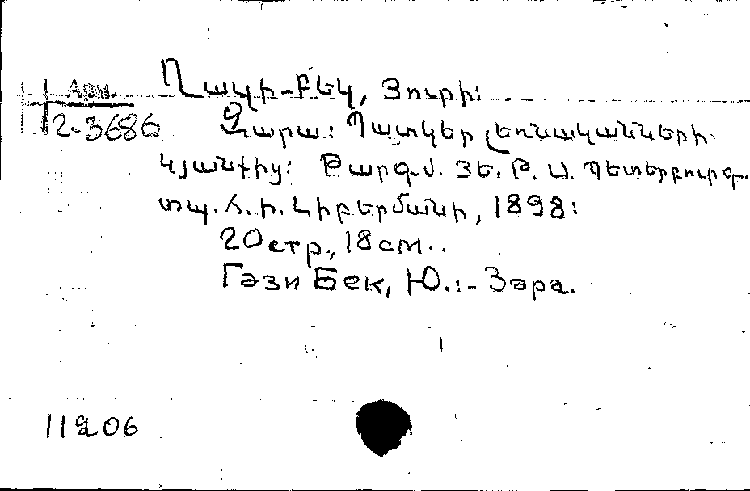 Ղազի-Բեկ, Յուրի։
Арм.
2-3686
Զարա։ Պատկեր լեռնականների
կյանքից։ Թարգմ. Յե. Թ. Ա. Պետերբուրգ.
տպ. Ճ. Ի. Լիբերմանի, 1898։
20стр., 18см..
Гази Бек, Ю.:- Зара.
11206